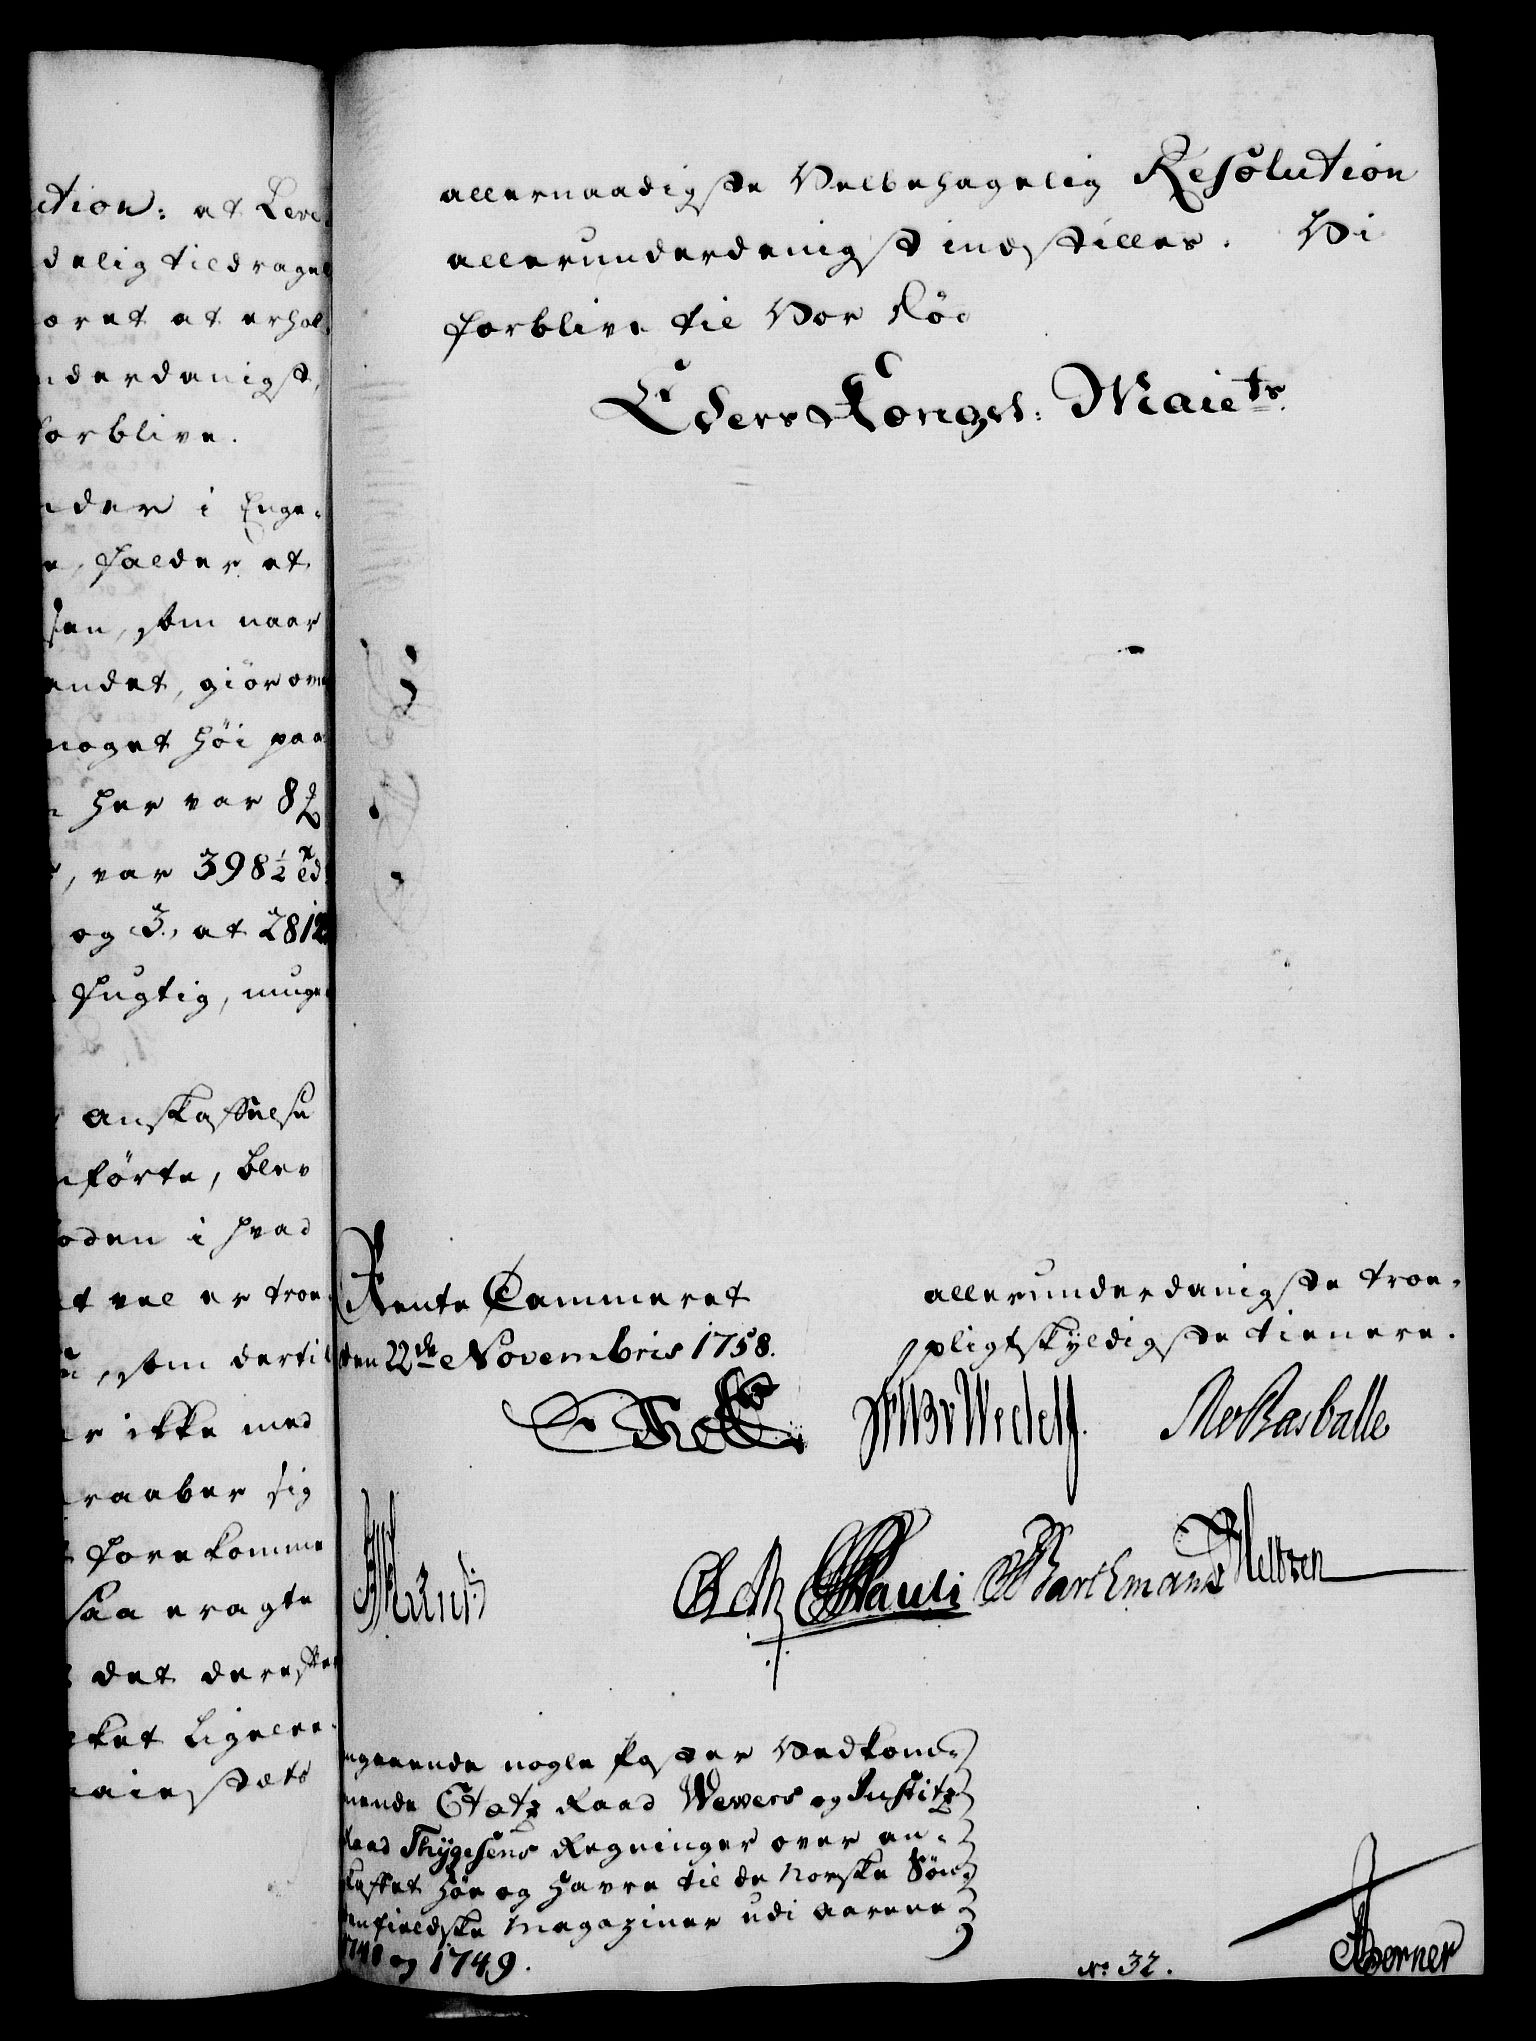 ction: at Leve
delig tildragel
oret at erhol
nderdanigst,
forblive.
nder i Enge-
e, falder et
sen, som naar
endet, giör om
noget höi paa
her var 8 ß
, var 398½
og 3, at 2812
fugtig, muge
anskaffelse
nförte, blev
oden i hvad
t vel er troe
som dertil
er ikke med
raaber sig
forekomme
saa eragte
det derefter
ket ligelee-
aiestæts
allernaadigste Velbehagelig Resolution
allerunderdanigst indstilles. Vi
forblive til Vor Död
Eders Kongel: Maiets.
Rente Cammeret
den 22de Novembris 1758.
allerunderdanigste troe-
pligtskyldigste tienere.
Wedell
Basballe
Pauli Barthmand Neltzen
ngaaende nogle Poster Vedkom-
mende Etatz Raad Wewers og Justitz
Raad Thygesens Regninger over an-
skaffet höe og havre til de Norske Sön-
denfieldske Magaziner udi Aarene
1748 og 1749.
No 32.
Berner